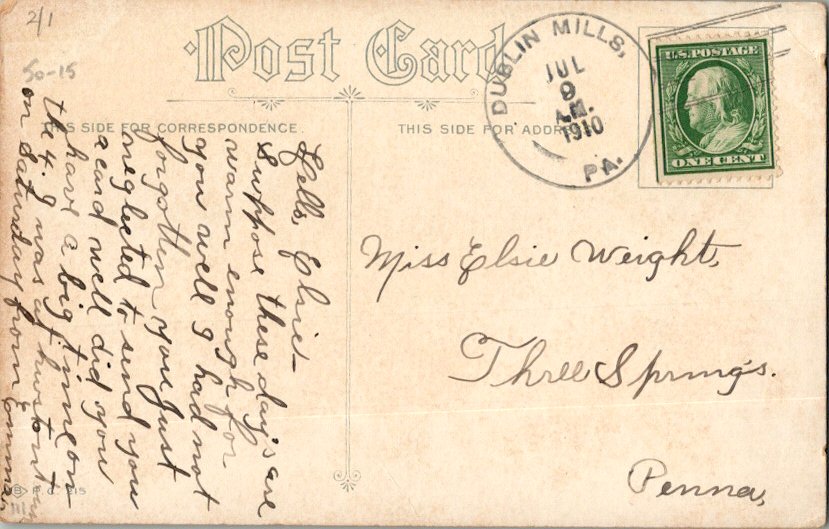 2/1
50-15
Post Card
THIS SIDE FOR CORRESPONDENCE.
THIS SIDE FOR ADDRESS
DUBLIN MILLS,
JUL
9
A.M.
1910
PA.
U.S. POSTAGE
ONE CENT
Hello, Elsie –
Suppose these day's are
warm enough for
you well I had not
forgothen you Just
neglected to send you
a card well did you
have a big time on
the 4. I was at
on Saturday from Emma
Miss Elsie Weight,
Three Springs.
Penna,
215